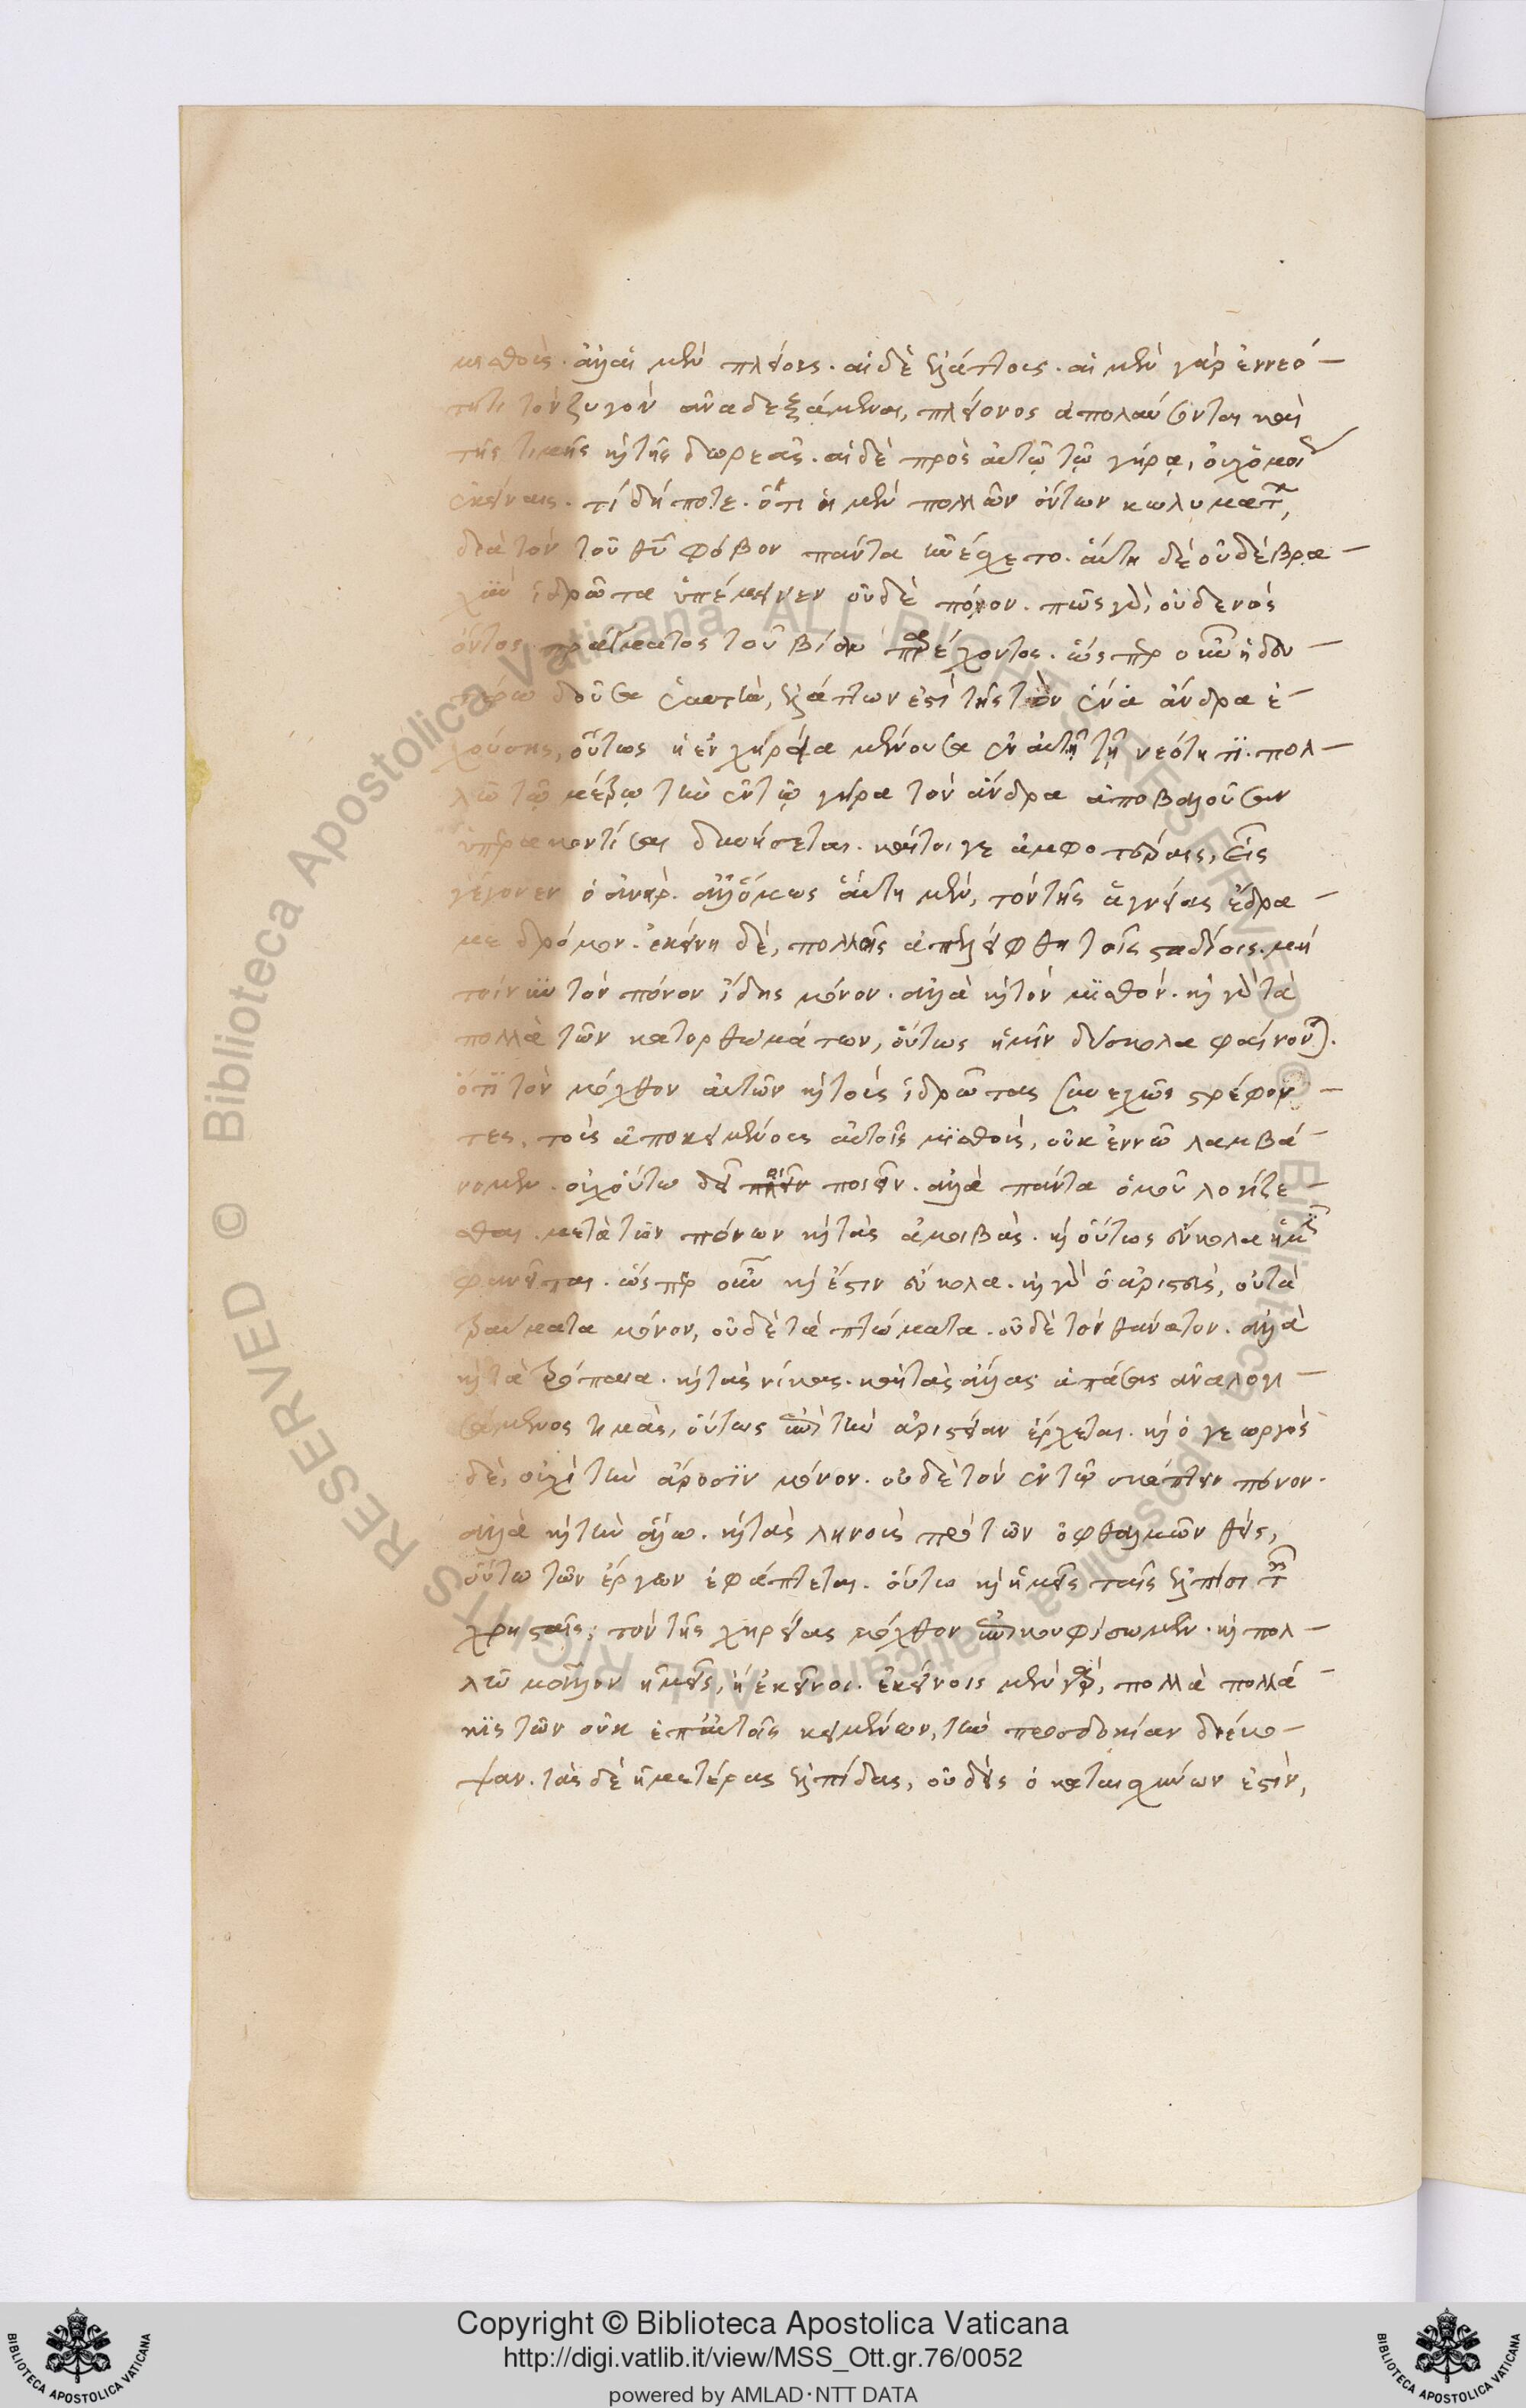 μισθοὺς. ἀλλ' αἱ μὲν πλείους. αἱ δὲ ἐλάττους. αἱ μὲν γὰρ ἐν νεό-
τητι τὸν ζυγὸν ἀναδεξάμεναι, πλείονος ἀπολαύσονται καὶ
τῆς τιμῆς καὶ τῆς δωρεᾶς. αἱ δὲ πρὸς αὐτῷ τῷ γήρᾳ, οὐχ ὁμοί
ἐκείναις. τί δή ποτε. ὅτι ἡ μὲν πολλῶν ὄντων κωλυμάτ,
διὰ τὸν τοῦ θῦ φόβον πάντα ἠνέσχετο. αὕτη δὲ οὐδὲ βρα-
χὺν ἱδρῶτα ὑπέμεινεν οὐδὲ πόνον. πῶς γὰρ, οὐδενὸς
ὄντος πράγματος τοῦ βίου παρέχοντος. ὥς περ οὖν ἡ δευ-
τέρῳ δοῦσα ἑαυτὴν, ἐλάττων ἐστὶ τῆς τὸν ἕνα ἄνδρα ἐ-
χούσης, οὕτως ἡ ἐν χηρείᾳ μένουσα ἐν αὐτῇ τῇ νεότητι. πολ-
λῷ τῷ μέτρῳ τὴν ἐν τῷ γήρᾳ τὸν ἄνδρα ἀποβαλοῦσαν
ὑπερακοντίσαι δυνήσεται. καί τοι γε ἀμφοτέραις, εἷς
γέγονεν ὁ ἀνήρ. ἀλλ' ὅμως αὕτη μὲν, τὸν τῆς ἁγνείας ἔδρα-
με δρόμον. ἐκείνη δὲ, πολλοῖς ἀπελείφθη τοῖς σταδίοις. μὴ
τοίνυν τὸν πόνον ἴδῃς μόνον. ἀλλὰ καὶ τὸν μισθόν. καὶ γὰρ τὰ
πολλὰ τῶν κατορθωμάτων, οὕτως ἡμῖν δύσκολα φαίνονται.
ὅτι τὸν μόχθον αὐτῶν καὶ τοὺς ἱδρῶτας συνεχῶς στρέφον-
τες, τοὺς ἀποκειμένους αὐτοῖς μισθοὺς, οὐκ ἐν νῷ λαμβά-
νομεν. οὐχ οὕτω δεῖ ποιεῖν. ἀλλὰ πάντα ὁμοῦ λογίζε-
σθαι. μετὰ τῶν πόνων καὶ τὰς ἀμοιβὰς. καὶ οὕτως εὔκολα ἡμῖν
φανεῖται. ὥς περ οὖν καὶ ἔστιν εὔκολα. καὶ γὰρ ὁ ἀριστεὺς, οὐ τὰ
τραύματα μόνον, οὐδὲ τὰ πτώματα. οὐδὲ τὸν θάνατον. ἀλλὰ
καὶ τὰ τρόπαια. καὶ τὰς νίκας. καὶ τὰς ἄλλας ἁπάσας ἀναλογι-
σάμενος τιμὰς, οὕτως ἐπὶ τὴν ἀριστείαν ἔρχεται. καὶ ὁ γεωργὸς
δὲ, οὐχὶ τὴν ἄροσιν μόνον. οὐδὲ τὸν ἐν τῷ σκάπτειν πόνον.
ἀλλὰ καὶ τὴν ἅλω. καὶ τὰς ληνοὺς πρὸ τῶν ὀφθαλμῶν θεὶς,
οὕτω τῶν ἔργων ἐφάπτεται. οὕτω καὶ ἡμεῖς ταῖς ἐλπίσι τ
χρησταῖς, τὸν τῆς χηρείας μόχθον ἐπικουφίσωμεν. καὶ πολ-
λῷ μᾶλλον ἡμεῖς, ἢ ἐκεῖνοι. ἐκείνοις μὲν γὰρ, πολλὰ πολλά-
κις τῶν οὐκ ἐπ' αὐτοῖς κειμένων, τὴν προσδοκίαν διέκο-
ψαν. τὰς δὲ ἡμετέρας ἐλπίδας, οὐδεὶς ὁ καταισχύνων ἐστὶν,
Copyright © Biblioteca Apostolica Vaticana
http://digi.vatlib.it/view/MSS_Ott.gr.76/0052
powered by AMLAD·NTT DATA